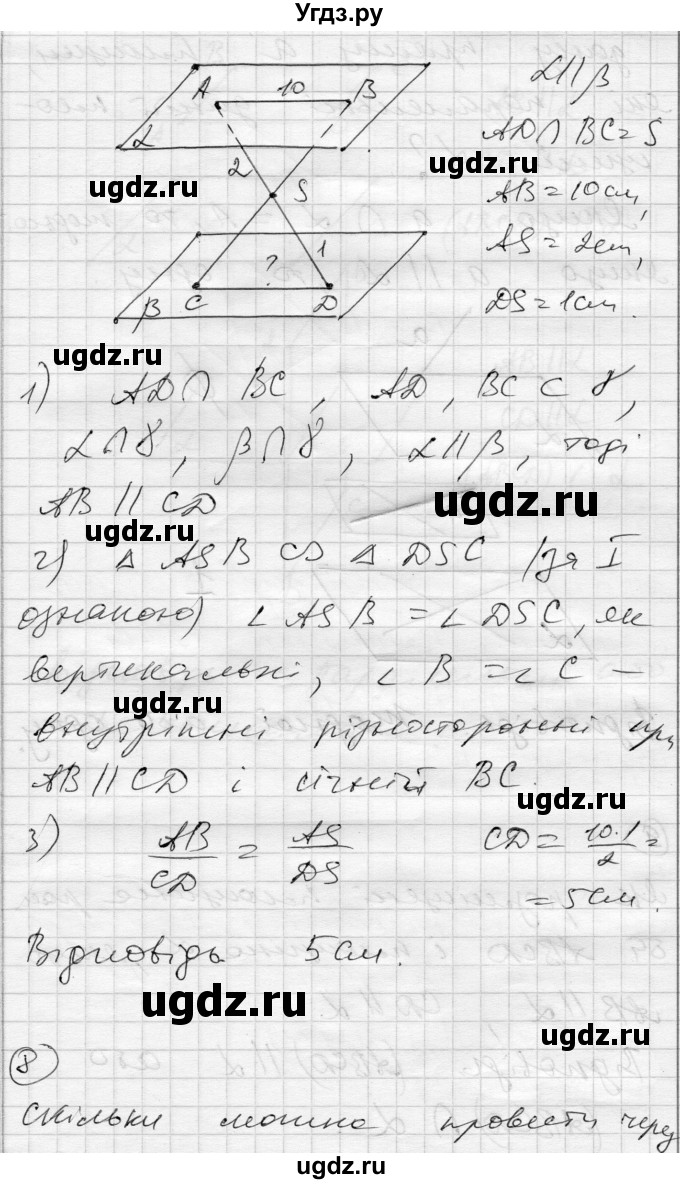 Угдз.ру
A 10 B
α
2
S
1
?
β C D
α||β
AD∩BC=S
AB=10см,
AS=2см,
DS=1см.
ugdz.ru
ugdz.ru
ugdz.ru
ugdz.ru
1) AD∩BC, AD, BC⊂γ,
α∩γ, β∩γ, α||β, тоді
AB||CD
ugdz.ru
ugdz.ru
2) △ASB ∽ △DSC (за I
ознакою) ∠ASB=∠DSC, як
вертикальні, ∠B=∠C –
ugdz.ru
внутрішні різносторонні при
AB||CD і січній BC.
ugdz.ru
3) AB/CD = AS/DS CD = 10·1/2 =
= 5см.
ugdz.ru
Відповідь 5см.
ugdz.ru
ugdz.ru
8
Скільки можна провести через
ugdz.ru